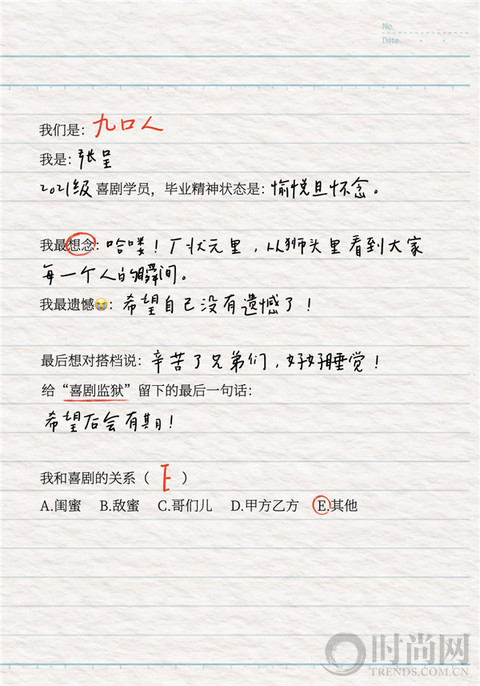 No.
Date
我们是：九口人
我是：张呈
2021级喜剧学员，毕业精神状态是：愉悦且怀念。
我最想念：哈喽！厂状元里，从狮头里看到大家
每一个人的瞬间。
我最遗憾😭：希望自己没有遗憾了！
最后想对搭档说：辛苦了兄弟们，好好睡觉！
给“喜剧监狱”留下的最后一句话：
希望后会有期！
我和喜剧的关系（ E ）
A.闺蜜 B.敌蜜 C.哥们儿 D.甲方乙方 E.其他
时尚网
TRENDS.COM.CN